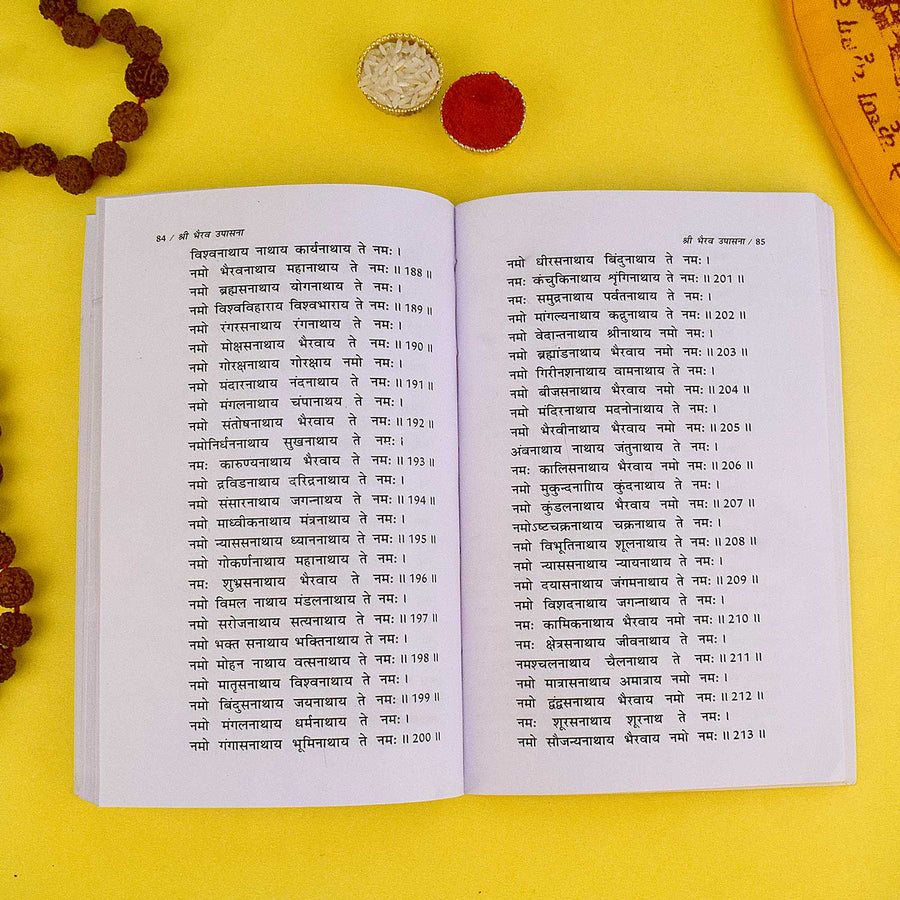 84 / श्री भैरव उपासना
विश्वनाथाय नाथाय कार्यनाथाय ते नमः ।
नमो भैरवनाथाय महानाथाय ते नमः ॥ 188 ॥
नमो ब्रह्मसनाथाय योगनाथाय ते नमः ।
नमो विश्वविहाराय विश्वभाराय ते नमः ॥ 189 ॥
नमो रंगरसनाथाय रंगनाथाय ते नमः ।
नमो मोक्षसनाथाय भैरवाय ते नमः ॥ 190 ॥
नमो गोरक्षनाथाय गोरक्षाय नमो नमः ।
नमो मंदारनाथाय नंदनाथाय ते नमः ॥ 191 ॥
नमो मंगलनाथाय चंपानाथाय ते नमः ।
नमो संतोषनाथाय भैरवाय ते नमः ॥ 192 ॥
नमोनिर्धननाथाय सुखनाथाय ते नमः ।
नमः कारुण्यनाथाय भैरवाय ते नमः ॥ 193 ॥
नमो द्रविडनाथाय दरिद्रनाथाय ते नमः ।
नमो संसारनाथाय जगन्नाथाय ते नमः ॥ 194 ॥
नमो माध्वीकनाथाय मंत्रनाथाय ते नमः ।
नमो न्याससनाथाय ध्याननाथाय ते नमः ॥ 195 ॥
नमो गोकर्णनाथाय महानाथाय ते नमः ।
नमः शुभ्रसनाथाय भैरवाय ते नमः ॥ 196 ॥
नमो विमल नाथाय मंडलनाथाय ते नमः ।
नमो सरोजनाथाय सत्यनाथाय ते नमः ॥ 197 ॥
नमो भक्त सनाथाय भक्तिनाथाय ते नमः ।
नमो मोहन नाथाय वत्सनाथाय ते नमः ॥ 198 ॥
नमो मातृसनाथाय विश्वनाथाय ते नमः ।
नमो बिंदुसनाथाय जयनाथाय ते नमः ॥ 199 ॥
नमो मंगलनाथाय धर्मनाथाय ते नमः ।
नमो गंगासनाथाय भूमिनाथाय ते नमः ॥ 200 ॥
श्री भैरव उपासना / 85
नमो धीरसनाथाय बिंदुनाथाय ते नमः ।
नमः कंचुकिनाथाय शृंगिनाथाय ते नमः ॥ 201 ॥
नमः समुद्रनाथाय पर्वतनाथाय ते नमः ।
नमो मांगल्यनाथाय कद्रुनाथाय ते नमः ॥ 202 ॥
नमो वेदान्तनाथाय श्रीनाथाय नमो नमः ।
नमो ब्रह्मांडनाथाय भैरवाय नमो नमः ॥ 203 ॥
नमो गिरीनशनाथाय वामनाथाय ते नमः ।
नमो बीजसनाथाय भैरवाय नमो नमः ॥ 204 ॥
नमो मंदिरनाथाय मदनोनाथाय ते नमः ।
नमो भैरवीनाथाय भैरवाय नमो नमः ॥ 205 ॥
अंबनाथाय नाथाय जंतुनाथाय ते नमः ।
नमः कालिसनाथाय भैरवाय नमो नमः ॥ 206 ॥
नमो कुंदनाथाय ते नमः ।
नमो कुंडलनाथाय भैरवाय नमो नमः ॥ 207 ॥
नमोऽष्टचक्रनाथाय चक्रनाथाय ते नमः ।
नमो विभूतिनाथाय शूलनाथाय ते नमः ॥ 208 ॥
नमो न्याससनाथाय न्यायनाथाय ते नमः ।
नमो दयासनाथाय जंगमनाथाय ते नमः ॥ 209 ॥
नमो विशदनाथाय जगन्नाथाय ते नमः ।
नमः कामिकनाथाय भैरवाय नमो नमः ॥ 210 ॥
नमः क्षेत्रसनाथाय जीवनाथाय ते नमः ।
नमश्चलनाथाय चैलनाथाय ते नमः ॥ 211 ॥
नमो मात्रासनाथाय अमात्राय नमो नमः ।
नमो द्वंद्वसनाथाय भैरवाय नमो नमः ॥ 212 ॥
नमः शूरसनाथाय शूरनाथ ते नमः ।
नमो सौजन्यनाथाय भैरवाय नमो नमः ॥ 213 ॥